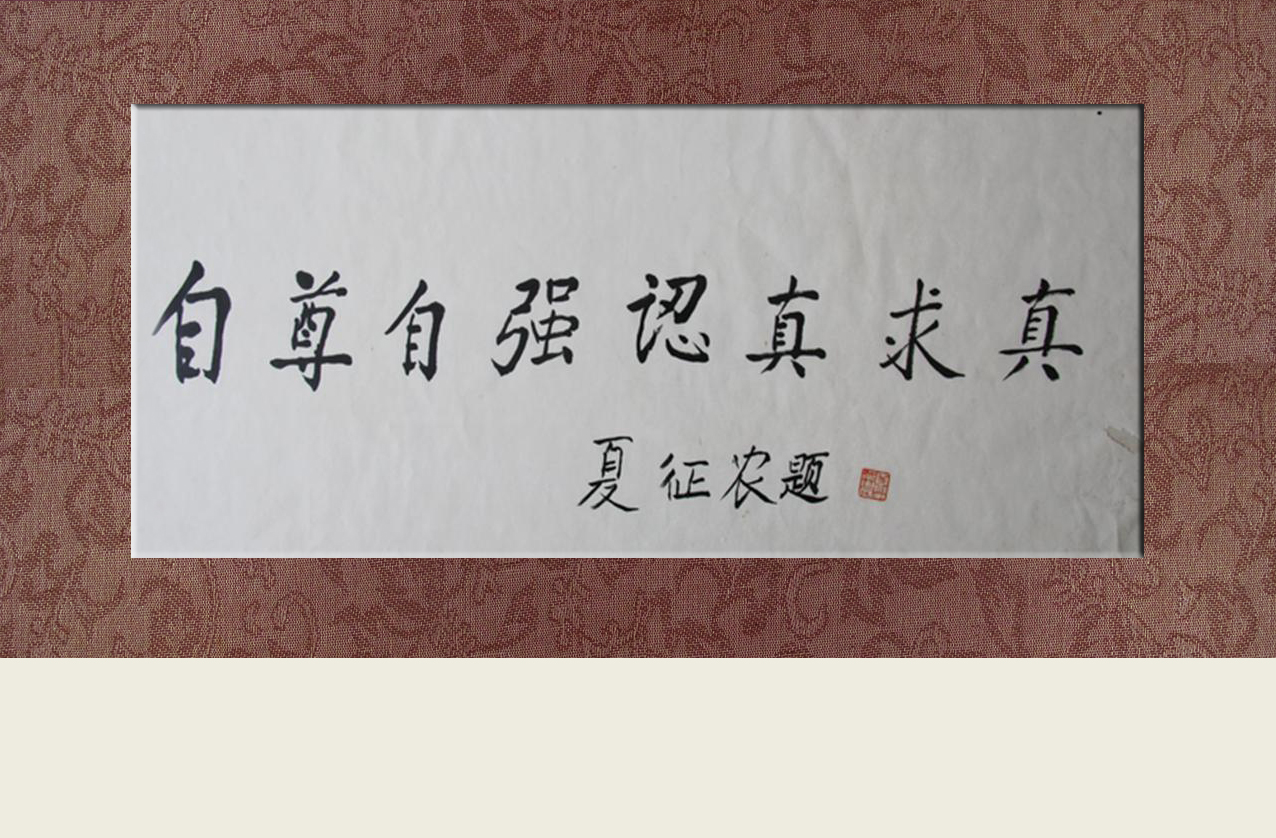 自尊自强認真求真
夏征农题